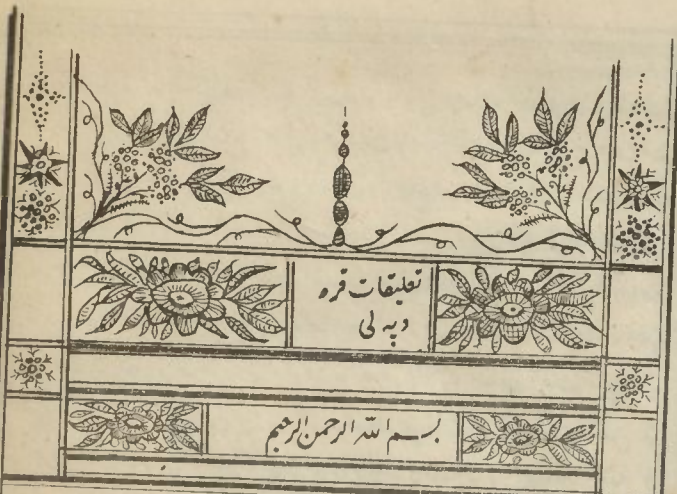 تعليقات قره
دپه لى
بسم الله الرحمن الرحيم